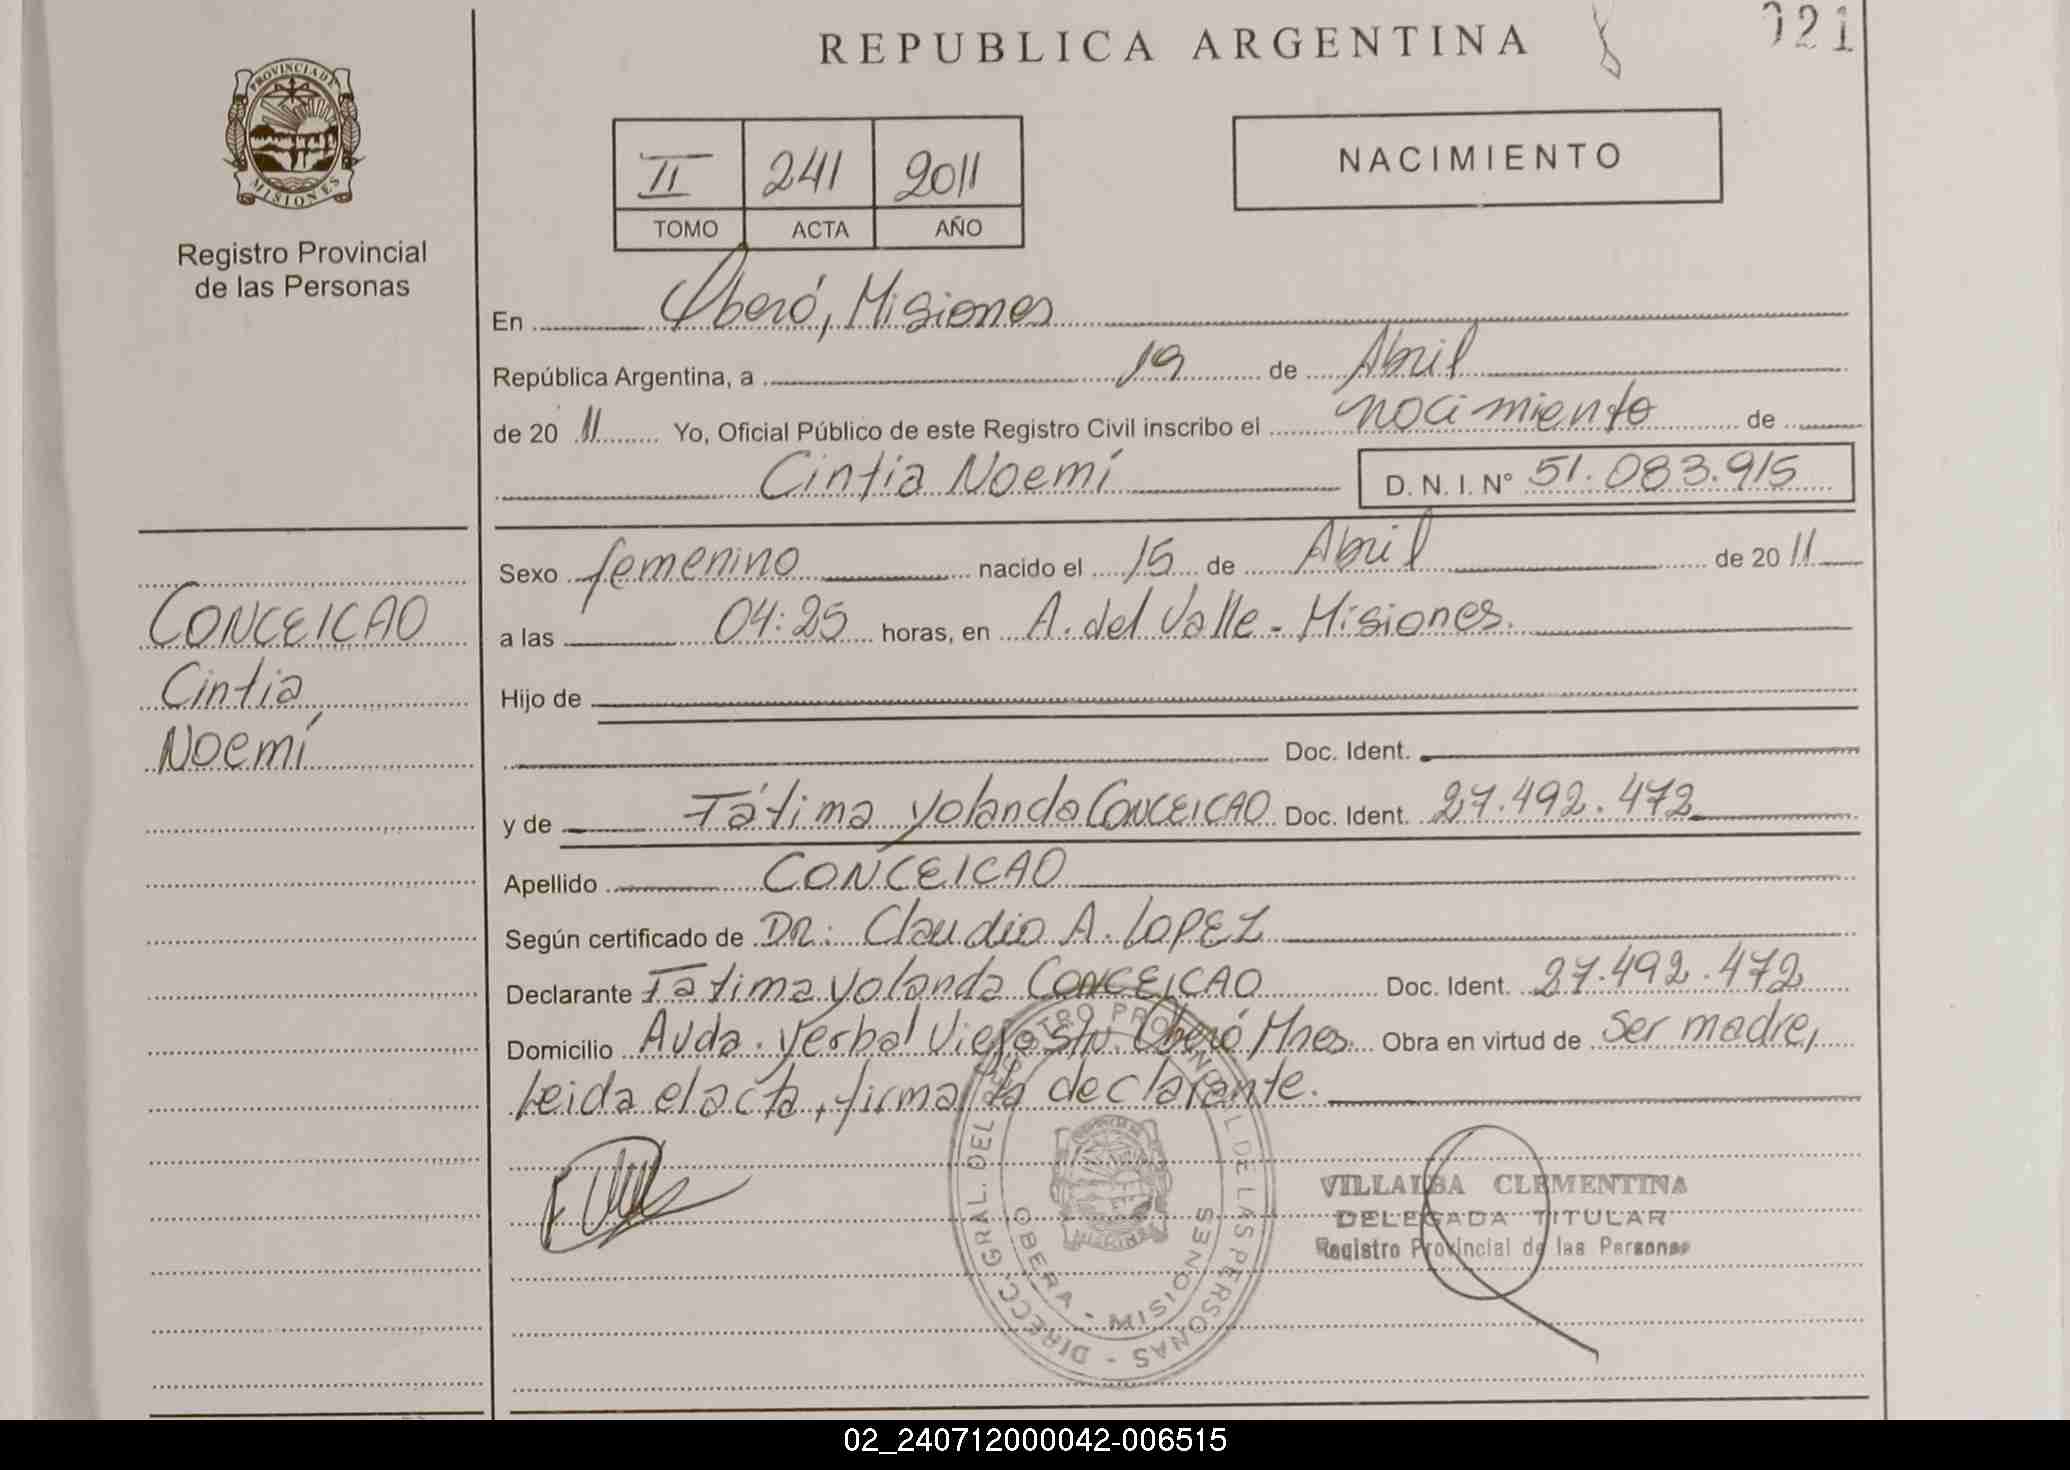 REPUBLICA ARGENTINA
021
PROVINCIA DE
MISIONES
Registro Provincial
de las Personas
II 241 2011
TOMO ACTA AÑO
NACIMIENTO
En Oberá, Misiones
República Argentina, a 19 de Abril
de 20 11 Yo, Oficial Público de este Registro Civil inscribo el nacimiento de
Cintia Noemí D. N. I. N° 51.083.915
Sexo femenino nacido el 15 de Abril de 20 11
a las 04:25 horas, en A. del Valle - Misiones.
Hijo de
Doc. Ident.
y de Fátima Yolanda CONCEICAO Doc. Ident. 27.492.472
Apellido CONCEICAO
Según certificado de DR. Claudio A. LOPEZ
Declarante Fátima Yolanda CONCEICAO Doc. Ident. 27.492.472
Domicilio Avda. Yerbal Viejo S/N. Oberá Mnes. Obra en virtud de ser madre,
Leida el acta, firma la declarante.
CONCEICAO
Cintia
Noemí
DIRECC. GRAL. DEL REGISTRO PROVINCIAL DE LAS PERSONAS
OBERA - MISIONES
VILLALBA CLEMENTINA
DELEGADA TITULAR
Registro Provincial de las Personas
02_240712000042-006515